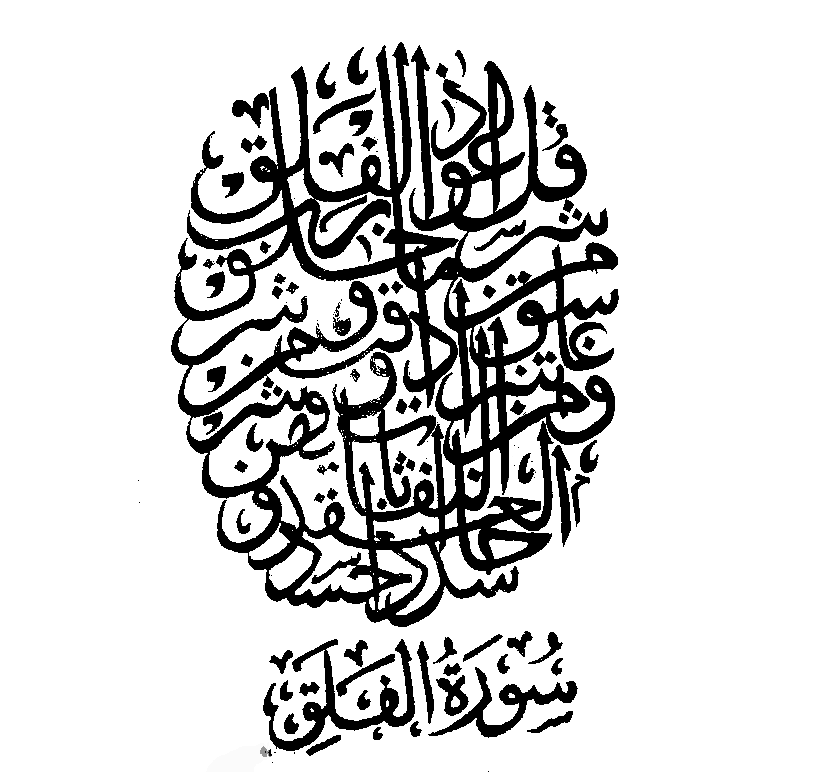 قل أعوذ برب الفلق
من شر ما خلق
ومن شر غاسق إذا وقب
ومن شر النفاثات في العقد
ومن شر حاسد إذا حسد
سُورَةُ الفَلَقِ